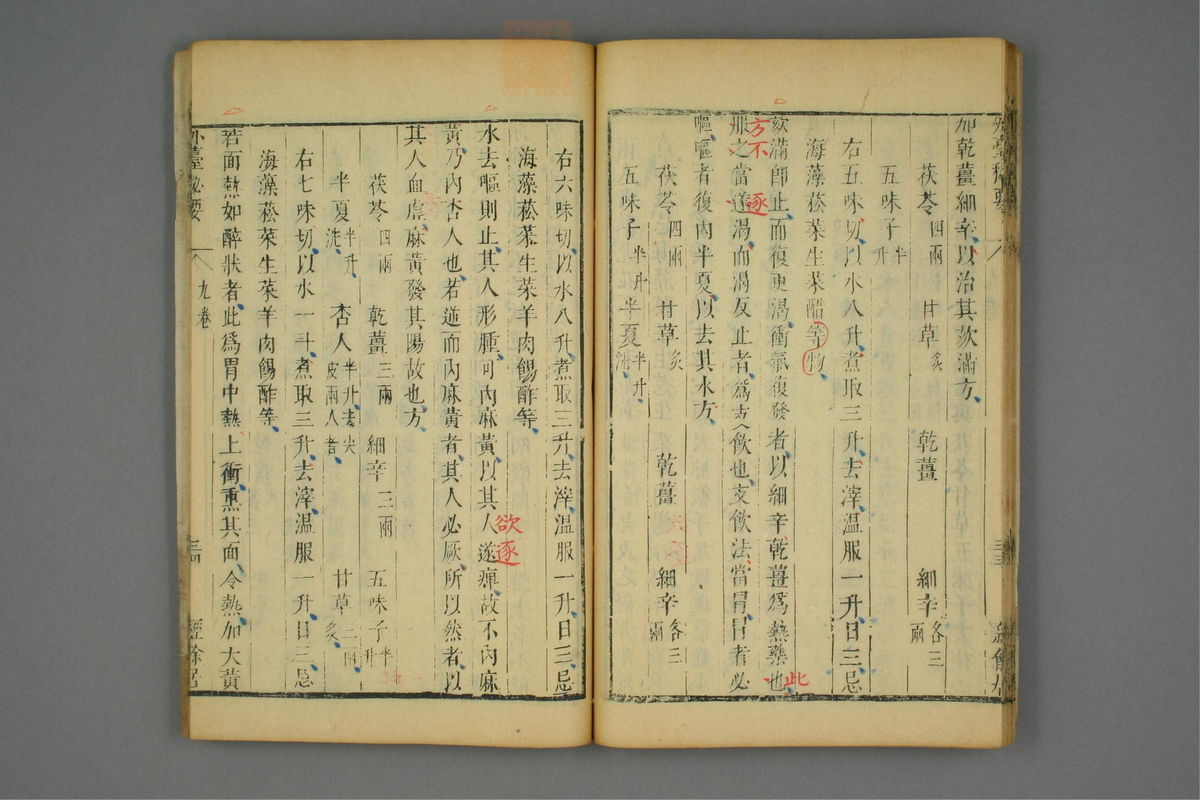 加乾薑細辛以治其欬滿方
茯苓四兩 甘草炙 乾薑 細辛各三兩
五味子半升
右五味切以水八升煮取三升去滓溫服一升日三忌
海藻菘菜生菜醋等物
欬滿即止而復更渴衝氣復發者以細辛乾薑為熱藥也
此
服之當遂渴而渴反止者為支飲也支飲法當冒冒者必
方不
逐
嘔嘔者復內半夏以去其水方
茯苓四兩 甘草炙 乾薑 細辛各三兩
五味子半升 半夏半升洗
右六味切以水八升煮取三升去滓溫服一升日三忌
海藻菘菜生菜羊肉餳酢等
水去嘔則止其人形腫可內麻黃以其人遂痺故不內麻
欲逐
黃乃內杏人也若逆而內麻黃者其人必厥所以然者以
其人血虛麻黃發其陽故也方
茯苓四兩 乾薑三兩 細辛三兩 五味子半升
半夏半升洗 杏人半升去尖皮兩人者 甘草三兩炙
右七味切以水一斗煮取三升去滓溫服一升日三忌
海藻菘菜生菜羊肉餳酢等
若面熱如醉狀者此為胃中熱上衝熏其面令熱加大黃
外臺祕要 九卷 三四 經餘居